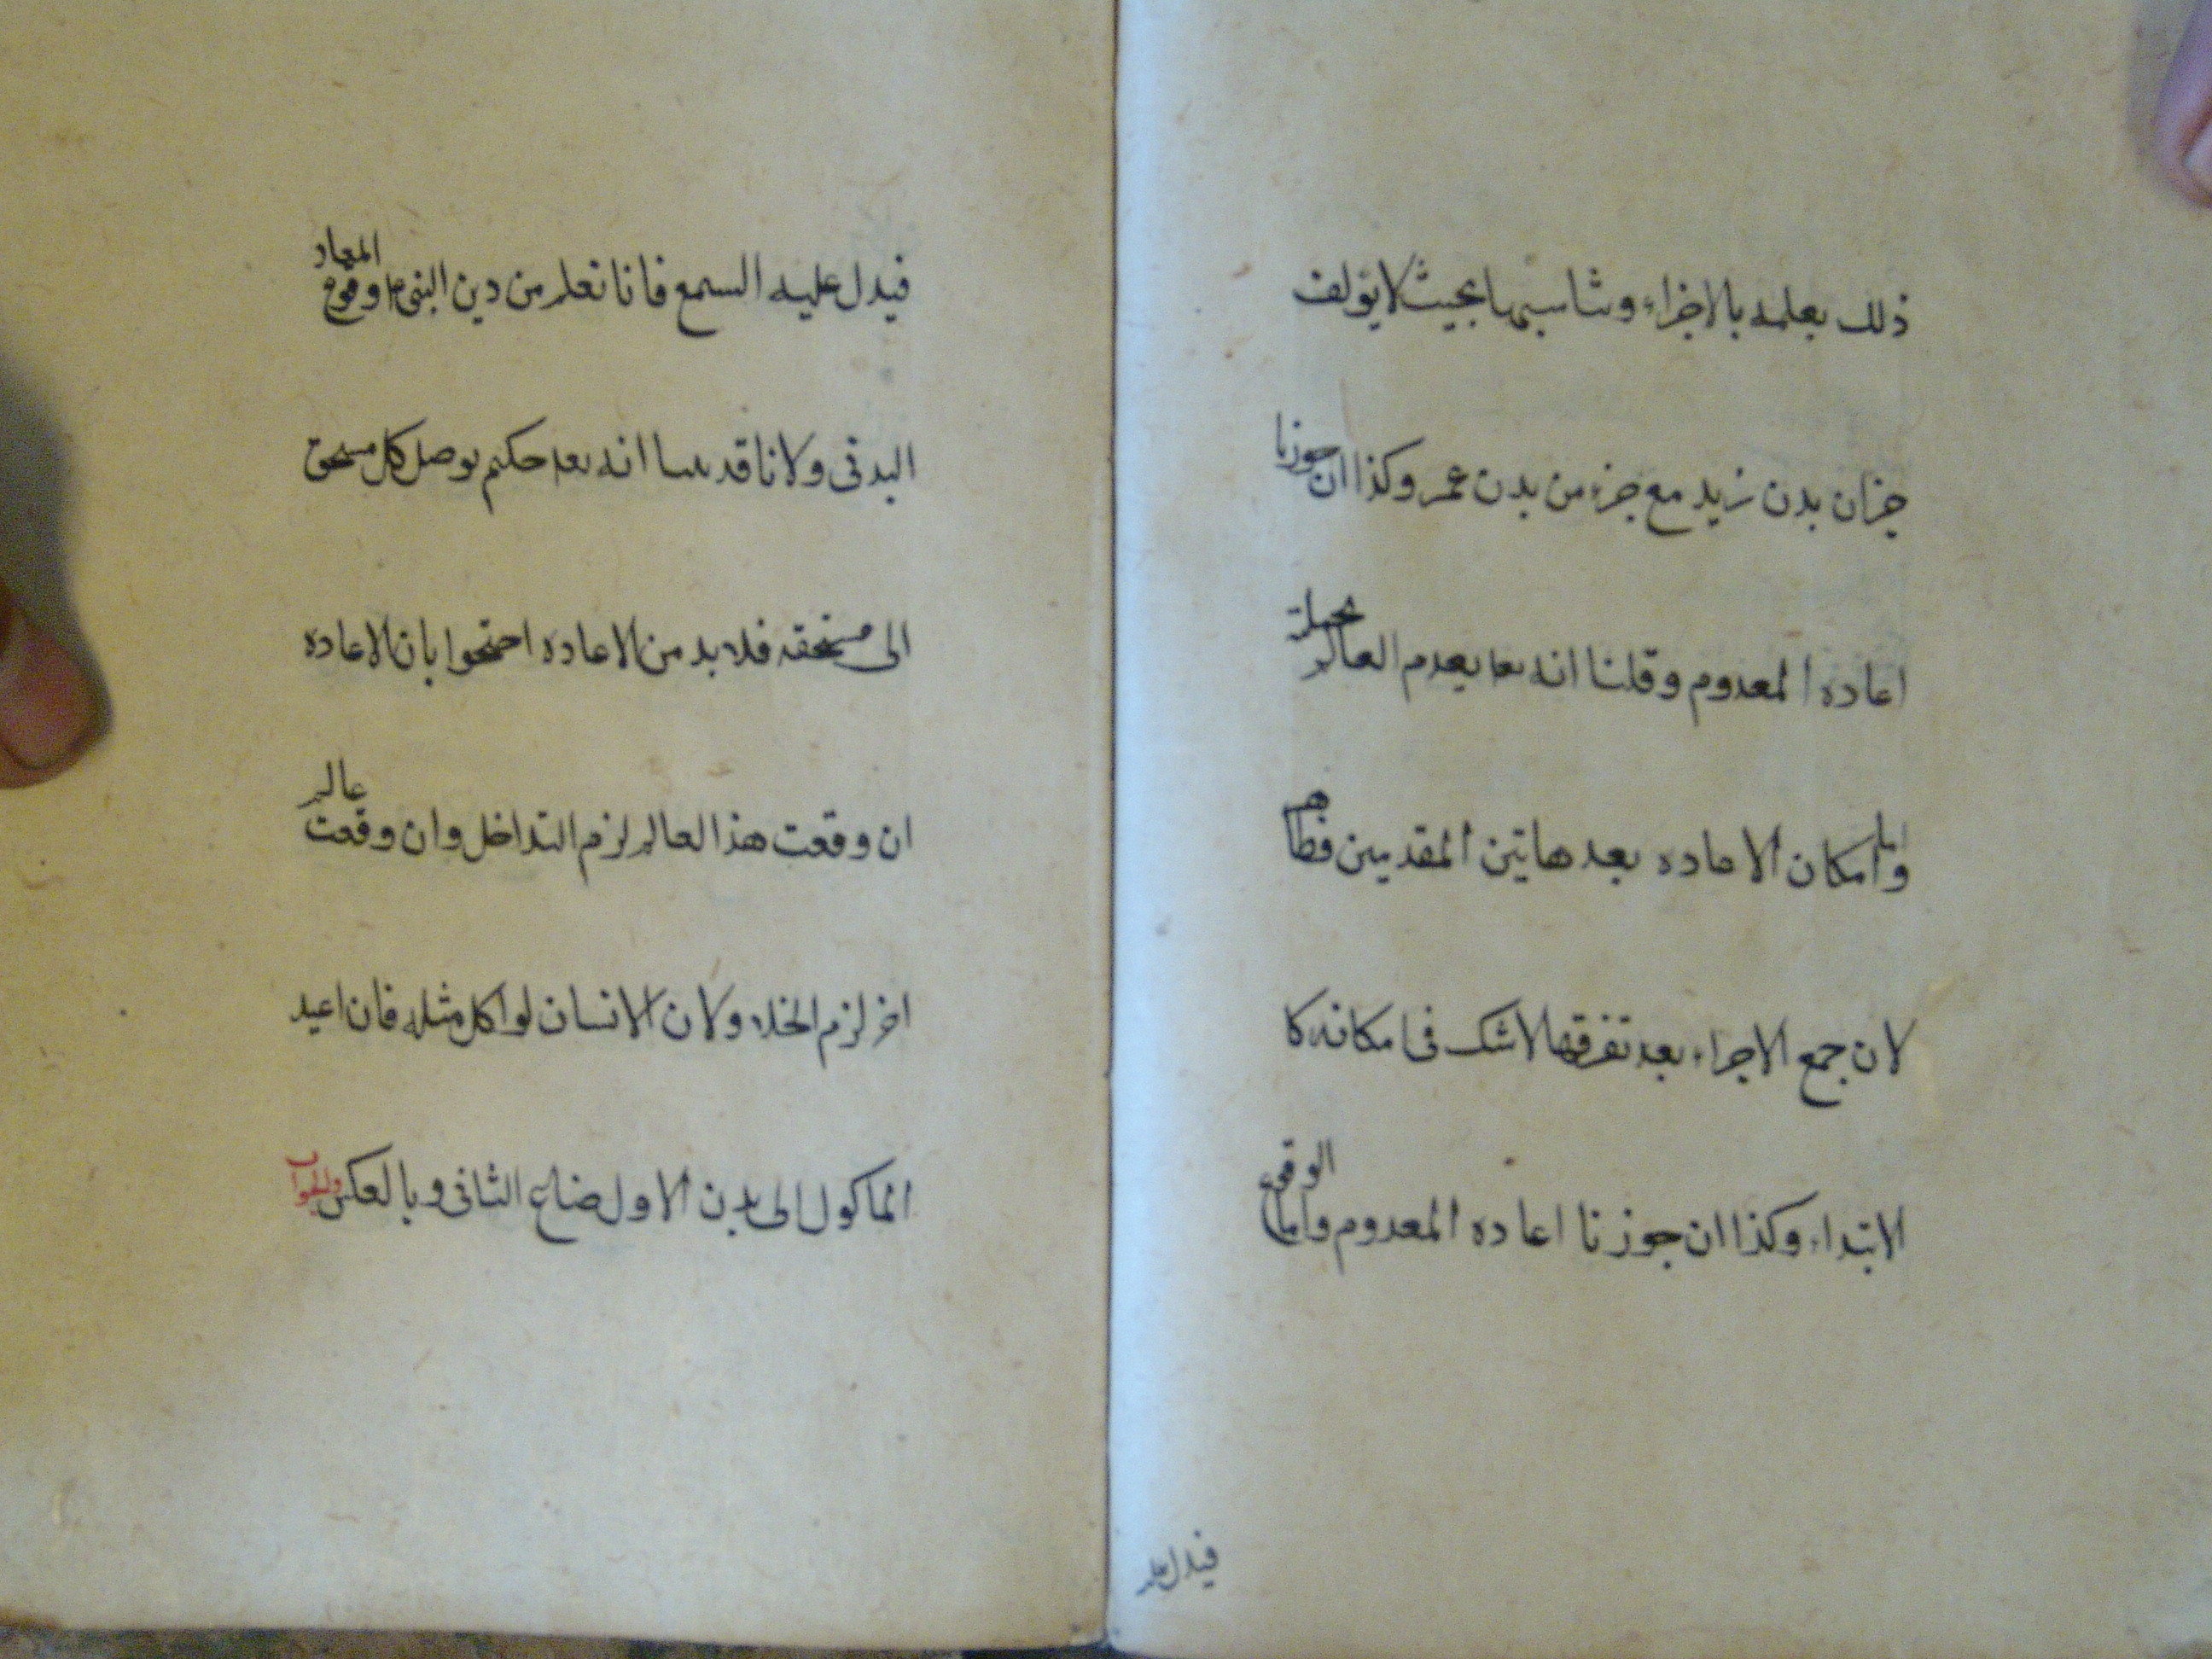 ذلك بعلمه بالاجزاء وتناسبها بحيث لا يؤلف
جزان بدن زيد مع جزء من بدن عمر وكذا ان جوزنا
اعاده المعدوم وقلنا انه تعا يعدم العالم بجملته
واما امكان الاعاده بعد هاتين المقدمتين فظاهر
لان جمع الاجراء بعد تفرقها لا شك فى امكانه كا
الابتداء وكذا ان جوزنا اعاده المعدوم واما الوقوع
فيدل علـ
فيدل عليه السمع فانا نعلم من دين النبى وقوع المعاد
البدنى ولانا قد بينا انه تعا حكيم يوصل كل مستحق
الى مستحقه فلابد من الاعاده احتجوا بان الاعاده
ان وقعت هذا العالم لزم التداخل وان وقعت عالم
اخر لزم الخلاء ولان الانسان لو اكل مثله فان اعيد
الماكول الى بدن الاول ضاع الثانى وبالعكس والجواب